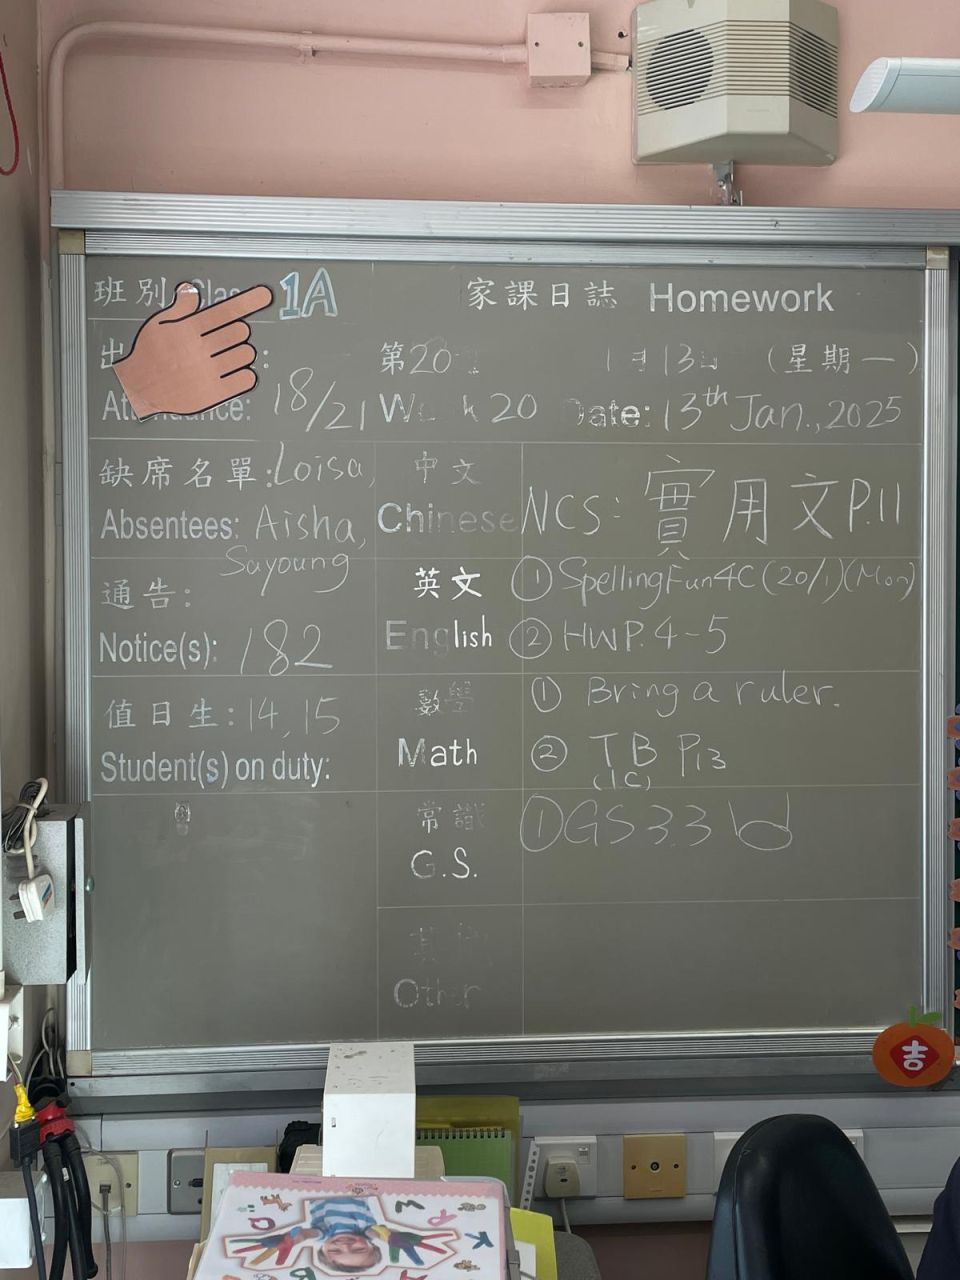 班別 Clas 1A 家課日誌 Homework
出 : 第20 1月13日 (星期一)
Attendance: 18/21 Week 20 Date: 13th Jan., 2025
缺席名單: Loisa, 中文
Absentees: Aisha, Chinese NCS: 實用文 P.11
Sayoung
通告: 英文 ① Spelling Fun 4C (20/1) (Mon)
Notice(s): 182 English ② HW P.4-5
值日生: 14, 15 數學 ① Bring a ruler.
Student(s) on duty: Math ② TB P13
(1C)
常識 ① GS 3.3
G.S.
其他
Other
吉